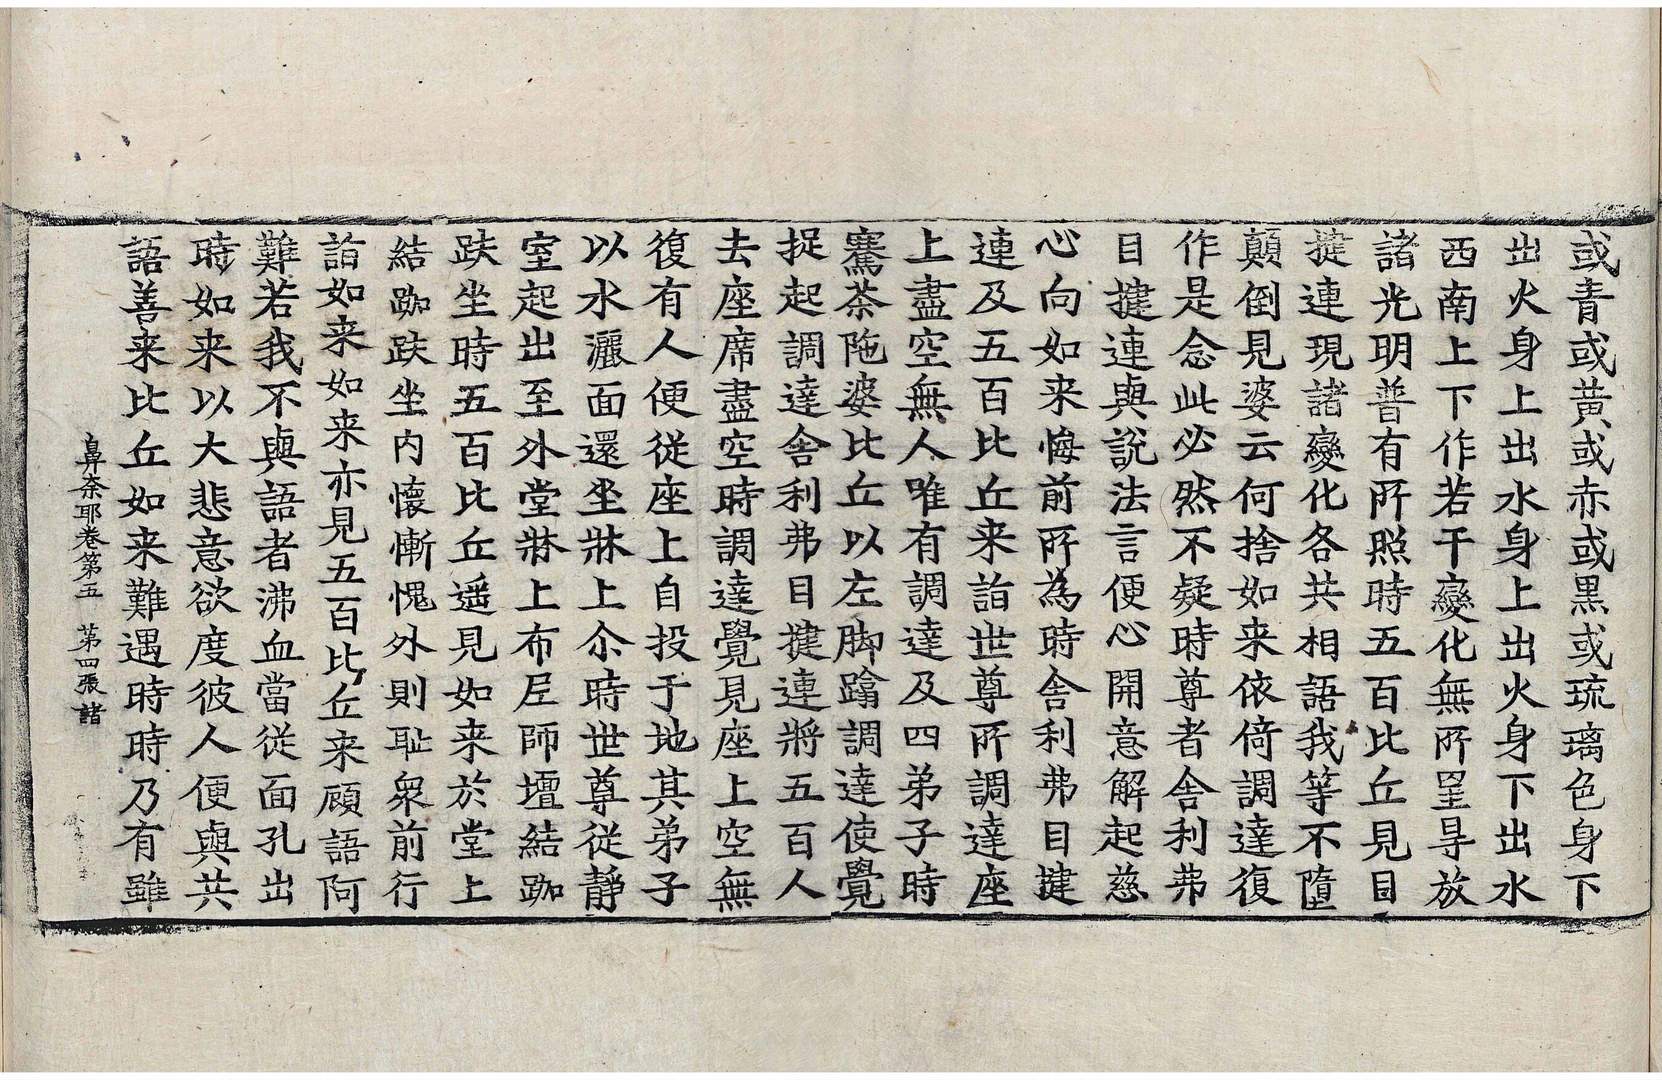 或青或黃或赤或黑或琉璃色身下
出火身上出水身上出火身下出水
西南上下作若干變化無所罣㝵放
諸光明普有所照時五百比丘見目
揵連現諸變化各共相語我等不墮
顛倒見婆云何捨如来依倚調達復
作是念此必然不疑時尊者舍利弗
目揵連與說法言便心開意解起慈
心向如来悔前所為時舍利弗目揵
連及五百比丘来詣世尊所調達座
上盡空無人唯有調達及四弟子時
騫荼陁婆比丘以左脚蹹調達使覺
捉起調達舍利弗目揵連將五百人
去座席盡空時調達覺見座上空無
復有人便從座上自投于地其弟子
以水灑面還坐牀上尒時世尊從靜
室起出至外堂牀上布尼師壇結跏
趺坐時五百比丘遥見如来於堂上
結跏趺坐内懷慚愧外則耻衆前行
詣如来如来亦見五百比丘来顧語阿
難若我不與語者沸血當從面孔出
時如来以大悲意欲度彼人便與共
語善来比丘如来難遇時時乃有雖
鼻奈耶卷第五　第四張　諸